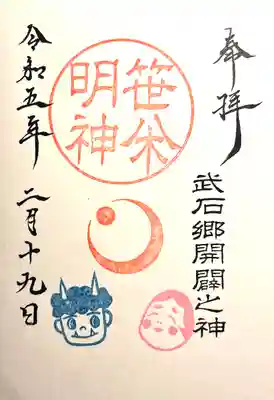 奉拝
武石郷開闢之神
笹焼明神
令和五年 二月十九日